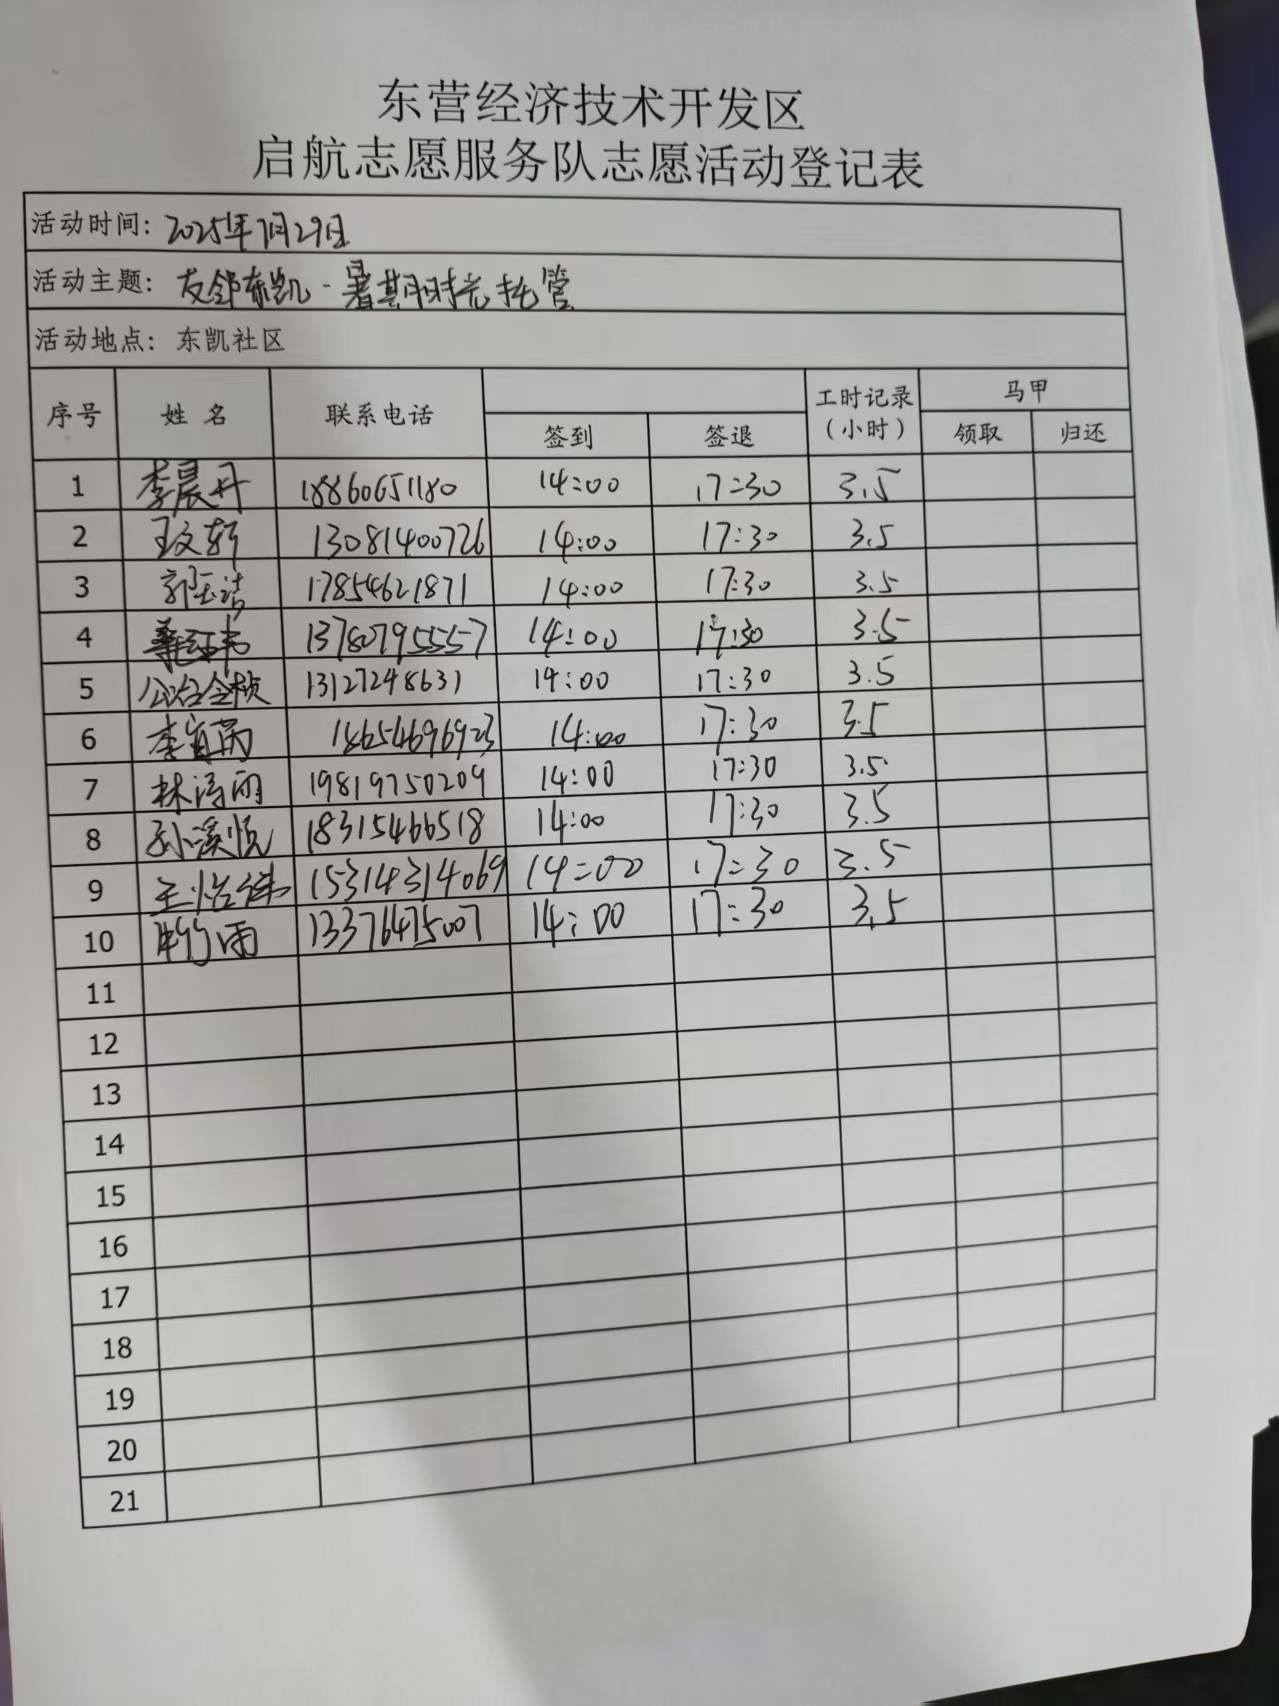 东营经济技术开发区
启航志愿服务队志愿活动登记表
活动时间：2025年7月29日
活动主题：友邻东凯·暑期时光托管
活动地点：东凯社区
序号 姓名 联系电话 签到 签退 工时记录（小时） 马甲 领取 归还
1 李晨丹 18860651180 14:00 17:30 3.5
2 王文轩 13081400726 14:00 17:30 3.5
3 郭玉洁 17854621871 14:00 17:30 3.5
4 13780795557 14:00 17:30 3.5
5 公冶金桢 13127248631 14:00 17:30 3.5
6 18654696923 14:00 17:30 3.5
7 林涛雨 19819750209 14:00 17:30 3.5
8 孙溪悦 18315466518 14:00 17:30 3.5
9 15314314069 14:00 17:30 3.5
10 13376475007 14:00 17:30 3.5
11
12
13
14
15
16
17
18
19
20
21